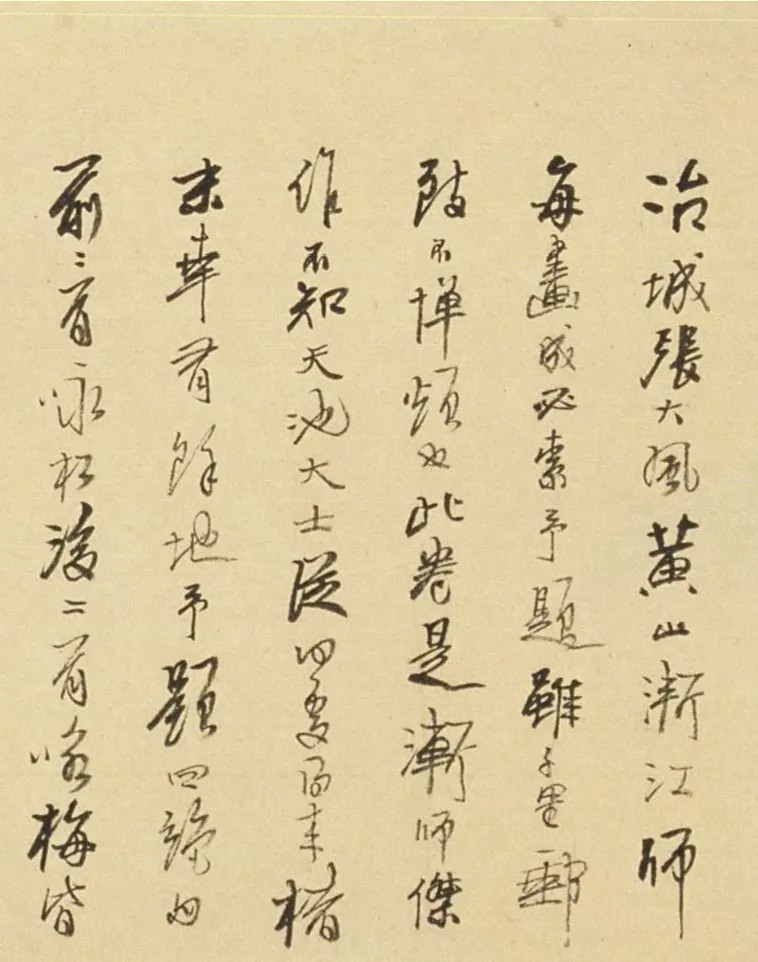 冶城張大風黃山漸江師
每畫成必索予題雖千里郵
致不憚煩也此卷是漸師傑
作不知天池大士從何處得来楮
末幸有餘地予題四詩
前二首咏松後二首咏梅皆